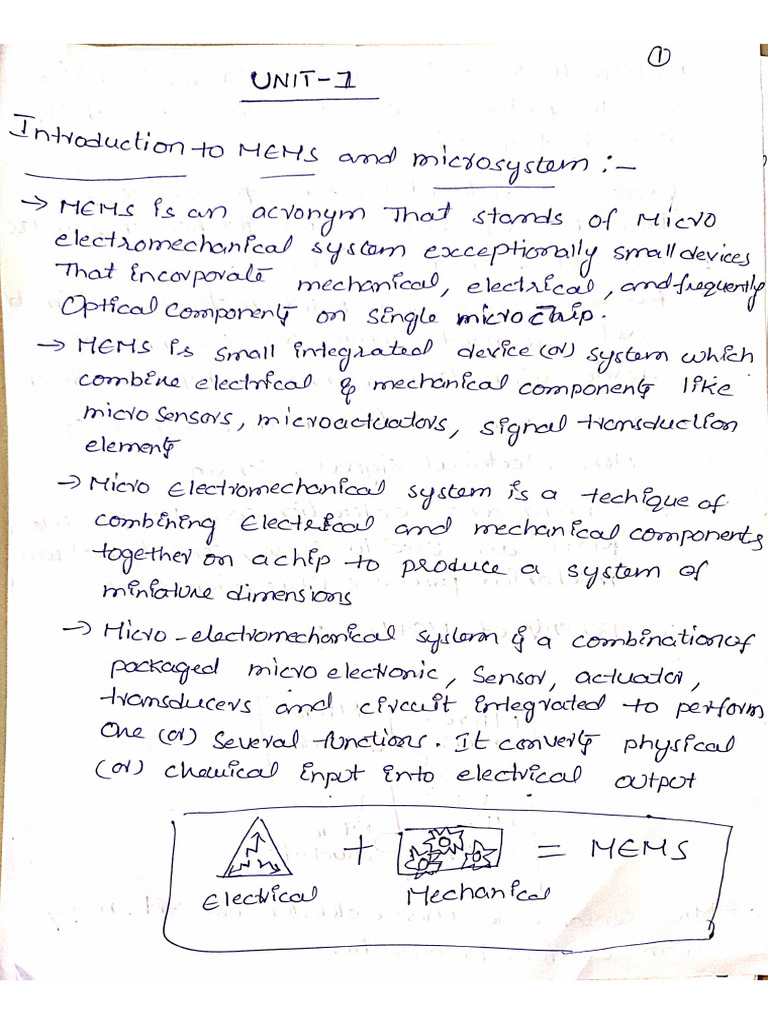 ①
UNIT-1
Introduction to MEMS and microsystem :-
→ MEMS is an acronym That stands of Micro
electromechanical system exceptionally small devices
That incorporate mechanical, electrical, and frequently
Optical Components on single microchip.
→ MEMS is small integrated device (or) system which
combine electrical & mechanical components like
micro sensors, microactuators, signal transduction
elements
→ Micro Electromechanical system is a techique of
combining Electrical and mechanical components
together on a chip to produce a system of
miniature dimensions
→ Micro-electromechanical system is a combination of
packaged micro electronic, Sensor, actuator,
transducers and circuit integrated to perform
One (or) several functions. It converts physical
(or) chemical input into electrical output
+ = MEMS
Electrical Mechanical